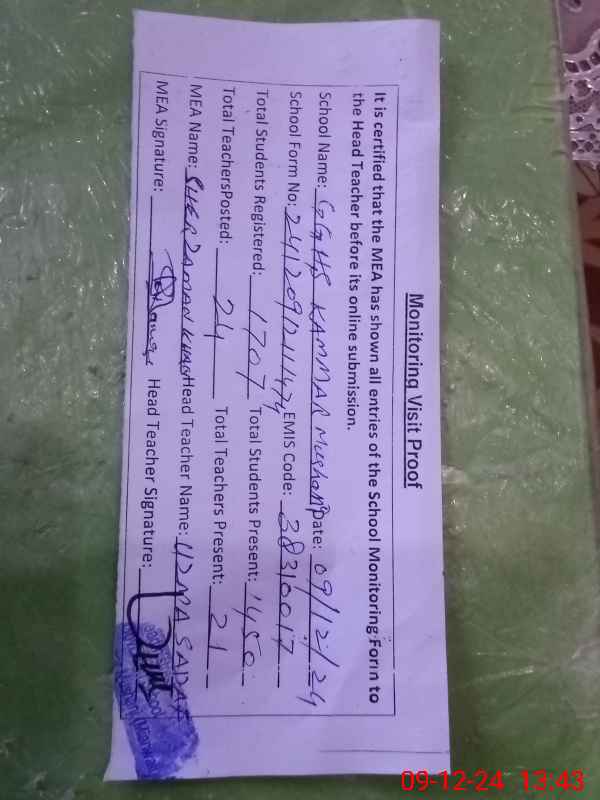 Monitoring Visit Proof
It is certified that the MEA has shown all entries of the School Monitoring Form to
the Head Teacher before its online submission.
School Name: GGHS KAMMAR Mushani Date: 09/12/24
School Form No: EMIS Code: 38310017
Total Students Registered: 1707 Total Students Present: 1450
Total TeachersPosted: 24 Total Teachers Present: 21
MEA Name: SHER ZAMAN KHAN Head Teacher Name: UZMA SAIDA
MEA Signature: Head Teacher Signature:
09-12-24 13:43